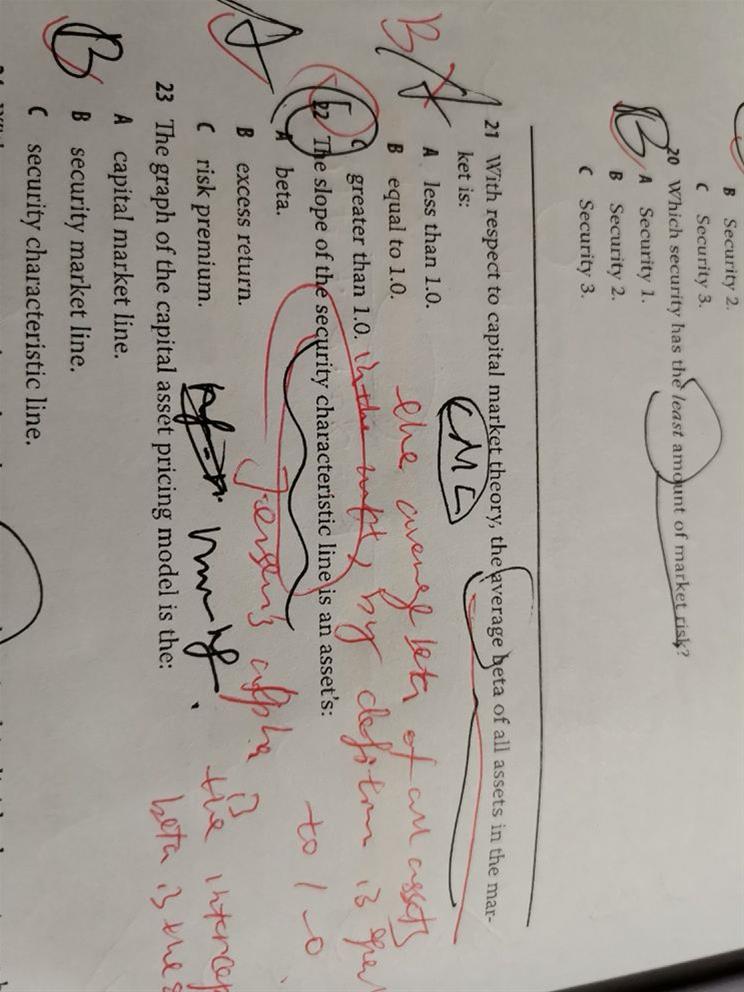 B Security 2.
C Security 3.
20 Which security has the least amount of market risk?
B
A Security 1.
B Security 2.
C Security 3.
21 With respect to capital market theory, the average beta of all assets in the mar-
ket is:
CML
B A
A less than 1.0.
B equal to 1.0.
C greater than 1.0.
the average beta of all assets
by definition is
to 1.0
22 The slope of the security characteristic line is an asset's:
A
A beta.
B excess return.
C risk premium.
Jensen's alpha is
the
beta is the
23 The graph of the capital asset pricing model is the:
B
A capital market line.
B security market line.
C security characteristic line.